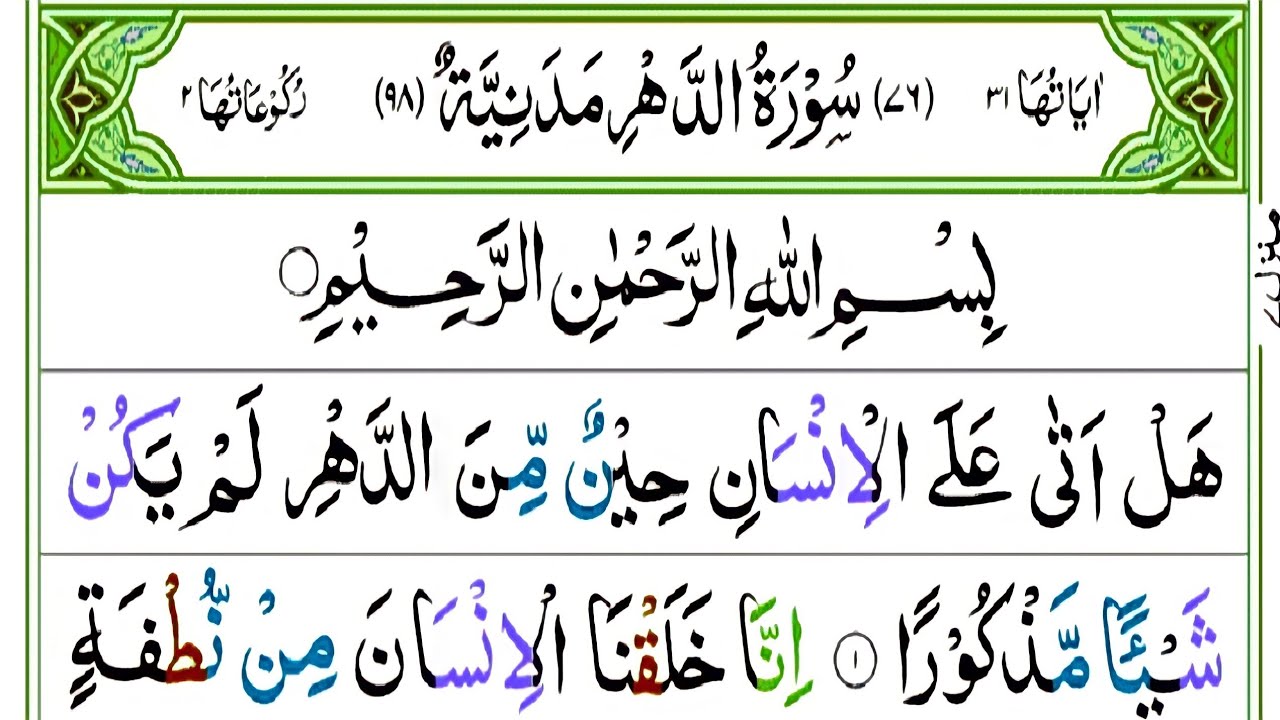 اٰیَاتُهَا ٣١ (٧٦) سُوْرَةُ الدَّهْرِ مَدَنِیَّةٌ (٩٨) رُكُوْعَاتُهَا ٢
بِسْمِ اللّٰهِ الرَّحْمٰنِ الرَّحِیْمِ
هَلْ اَتٰى عَلَى الْاِنْسَانِ حِیْنٌ مِّنَ الدَّهْرِ لَمْ یَكُنْ
شَیْـًٔا مَّذْكُوْرًا ١ اِنَّا خَلَقْنَا الْاِنْسَانَ مِنْ نُّطْفَةٍ